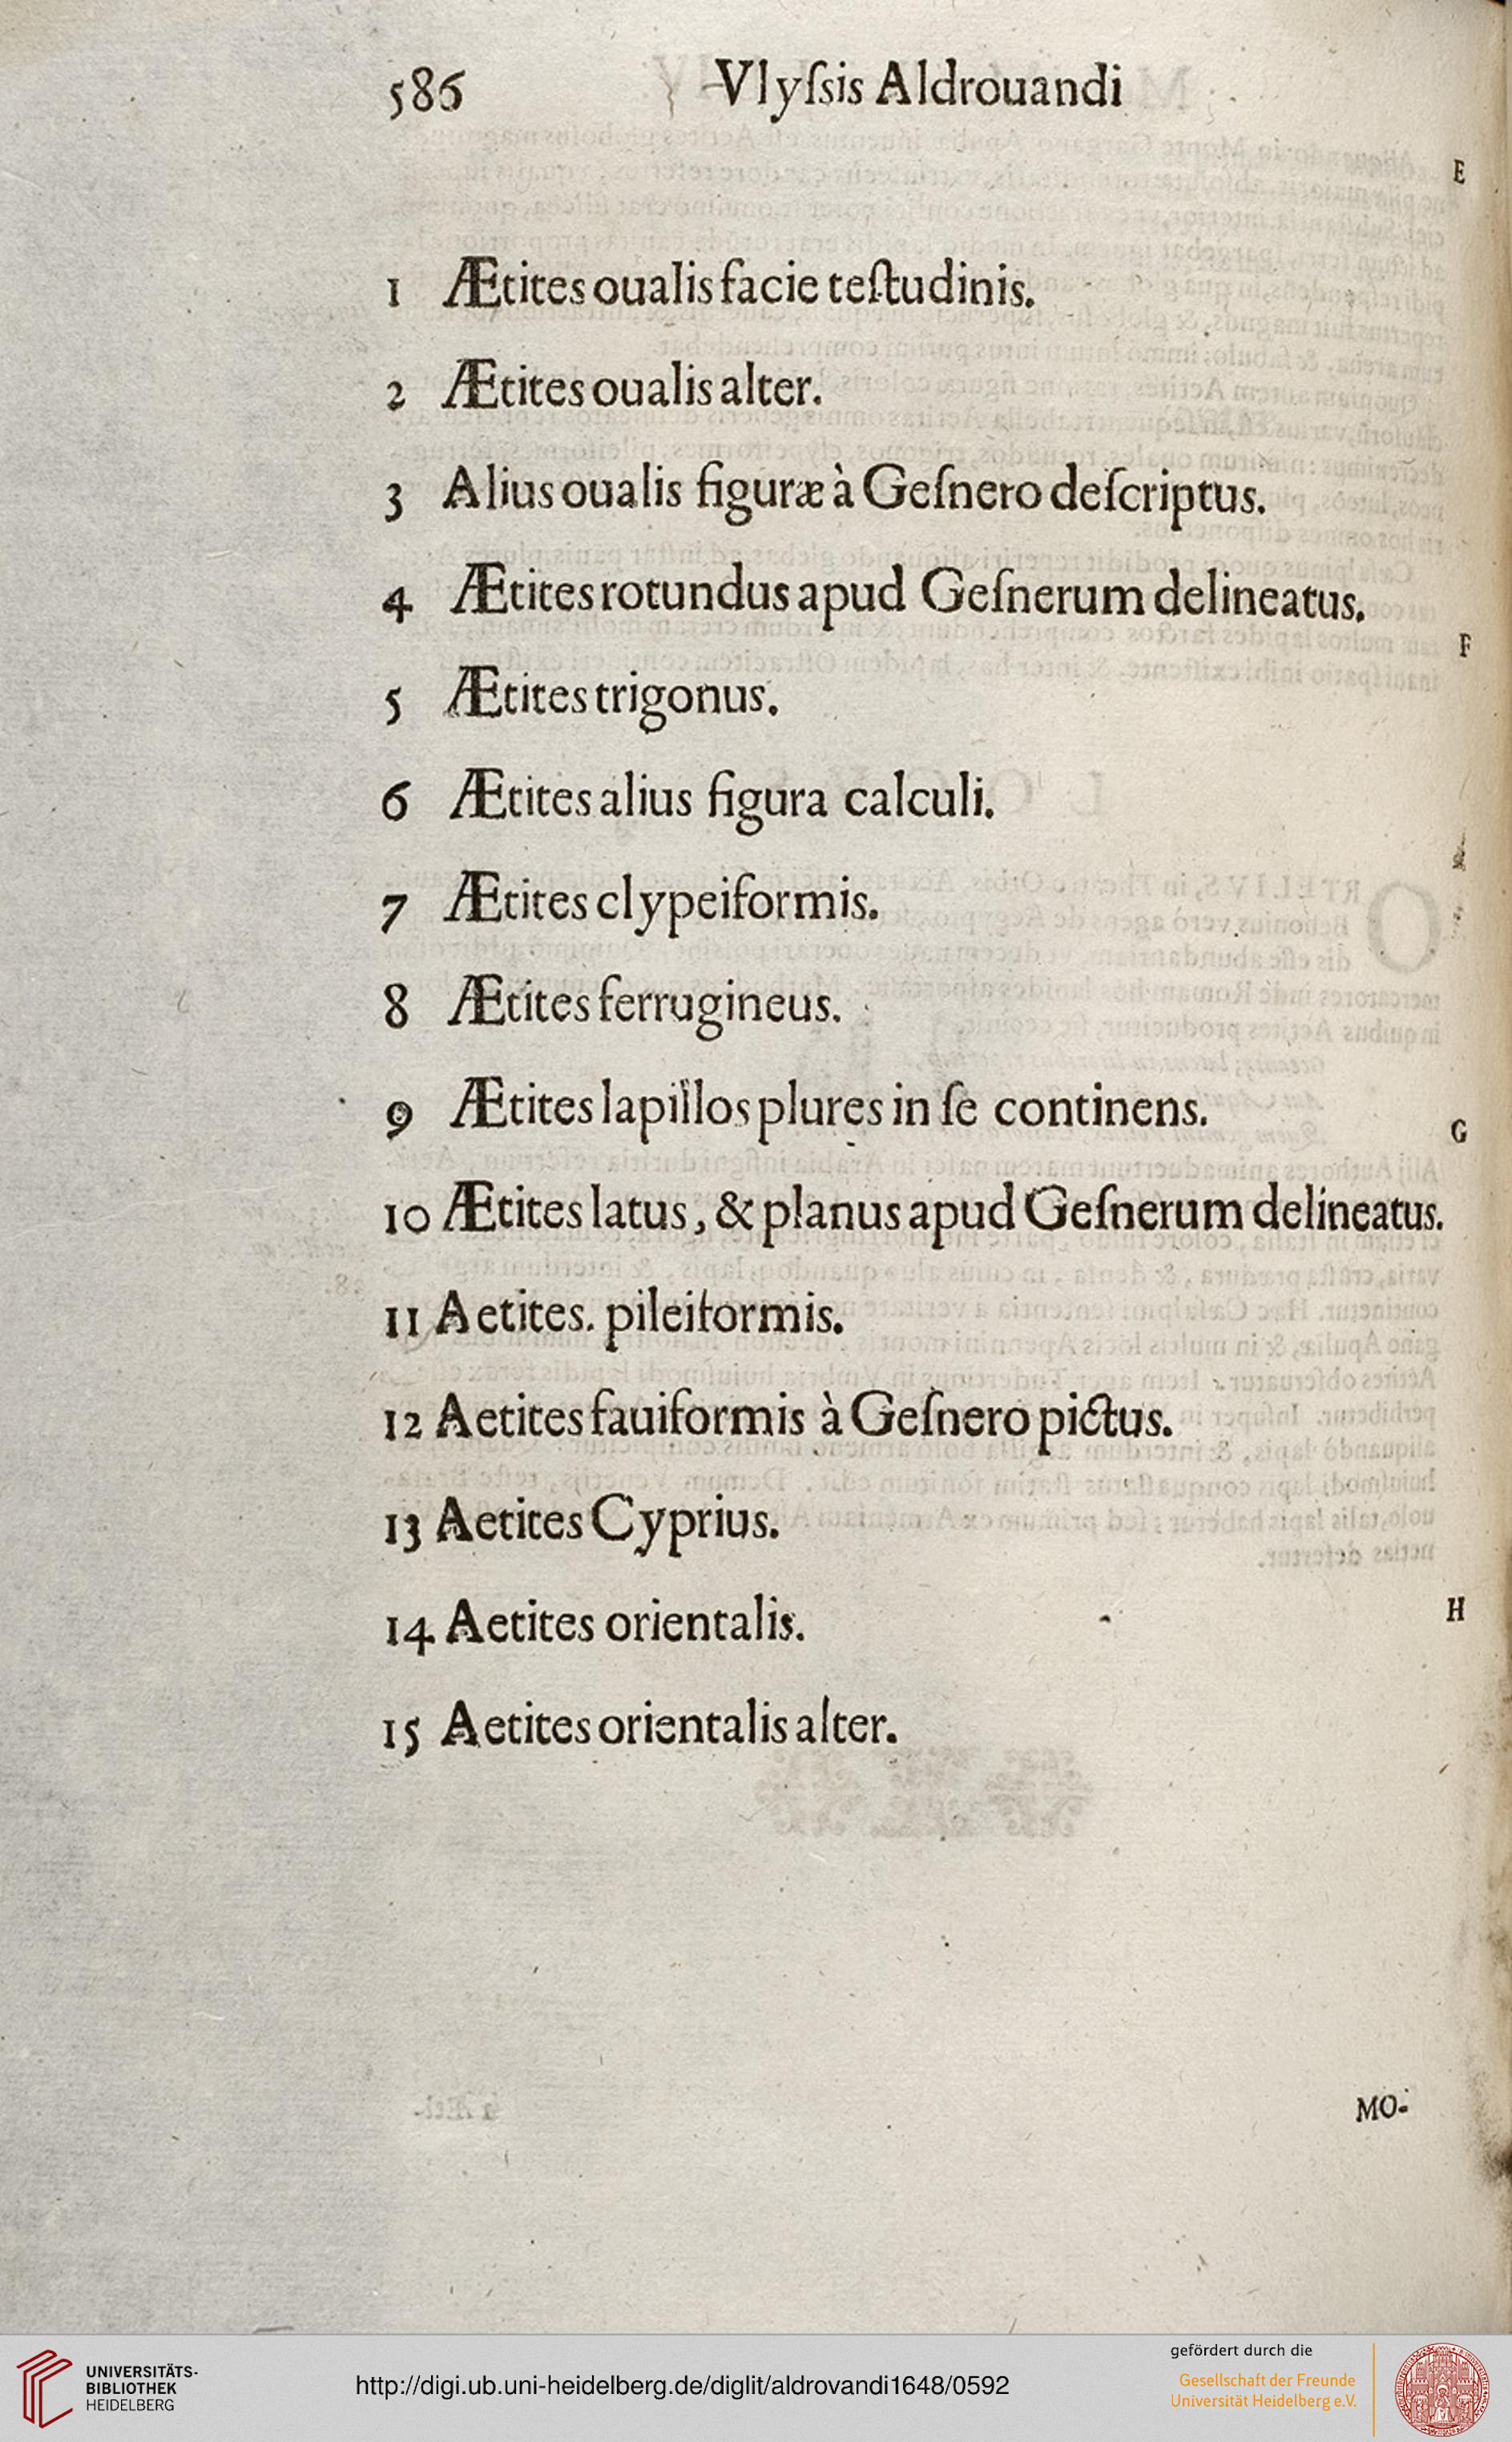 586 Vlyſsis Aldrouandi
E
1 Ætites oualis facie teſtudinis.
2 Ætites oualis alter.
3 Alius oualis figuræ à Geſnero deſcriptus.
4 Ætites rotundus apud Geſnerum delineatus.
F
5 Ætites trigonus.
6 Ætites alius figura calculi.
7 Ætites clypeiformis.
8 Ætites ferrugineus.
9 Ætites lapillos plures in ſe continens.
G
10 Ætites latus, & planus apud Geſnerum delineatus.
11 Aetites. pileiformis.
12 Aetites fauiformis à Geſnero pictus.
13 Aetites Cyprius.
14 Aetites orientalis.
H
15 Aetites orientalis alter.
MO-
UNIVERSITÄTS-
BIBLIOTHEK
HEIDELBERG
http://digi.ub.uni-heidelberg.de/diglit/aldrovandi1648/0592
gefördert durch die
Gesellschaft der Freunde
Universität Heidelberg e.V.